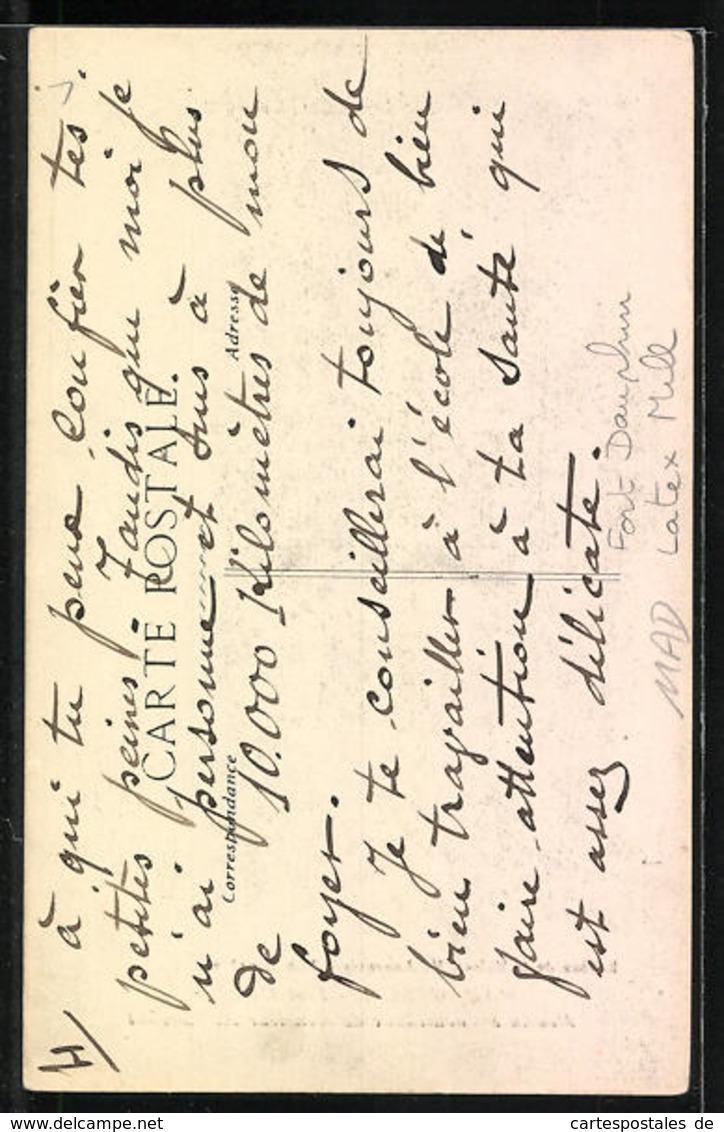 4/
à qui tu peux confier tes
petites peines. Tandis que moi je
n'ai personne et suis à plus
de 10.000 Kilomètres de mon
foyer.
Je te conseillerai toujours de
bien travailler à l'école de bien
faire attention à ta santé qui
est assez délicate.
CARTE POSTALE.
Correspondance
Adresse
Fort Dauphin
Latex Mill
MAD
www.delcampe.net
cartespostales de